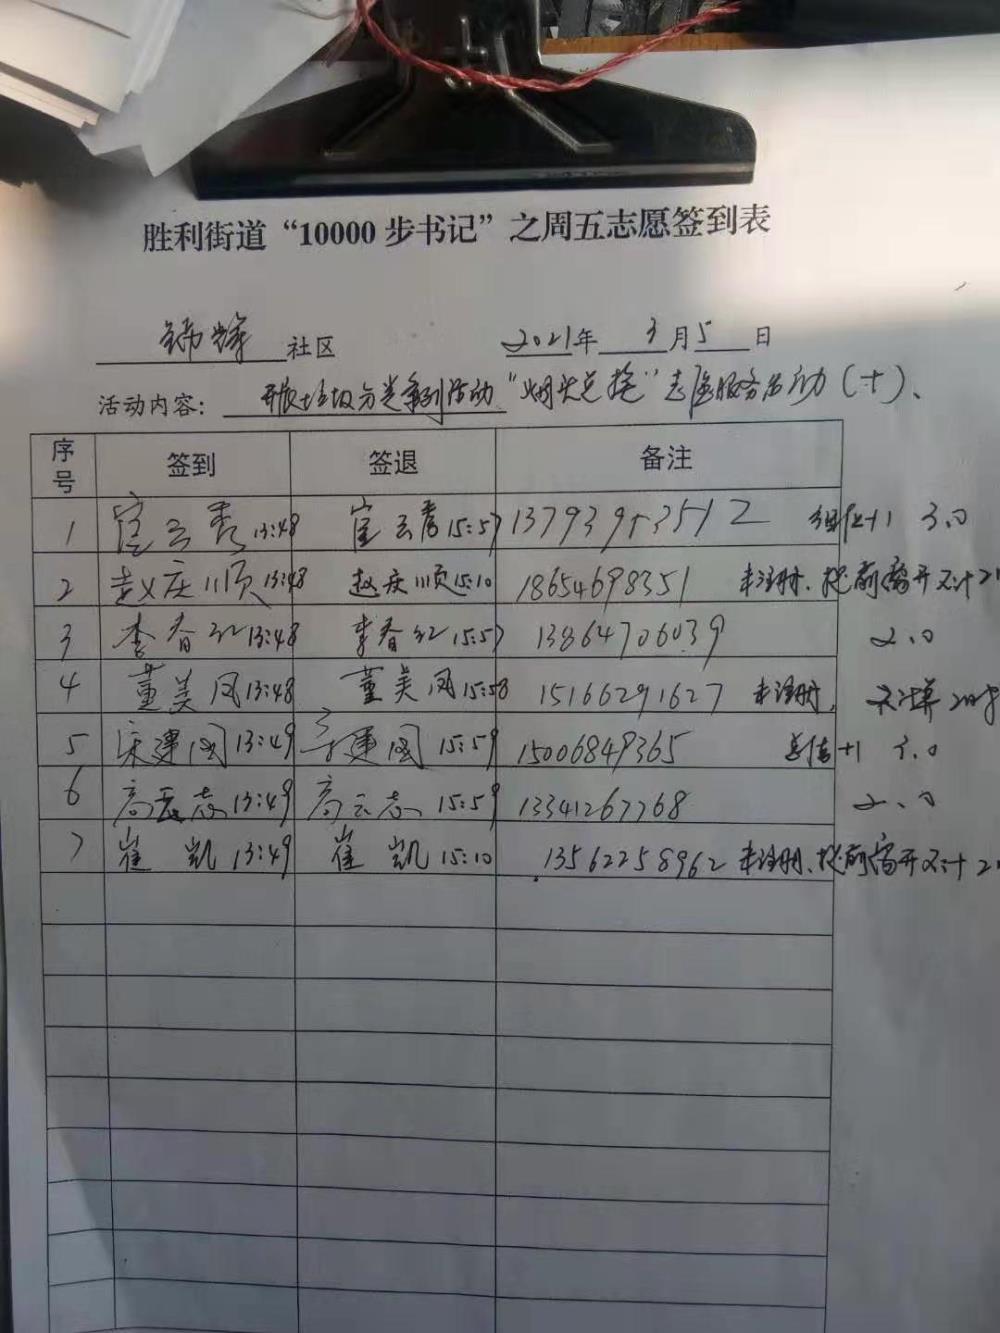 胜利街道“10000步书记”之周五志愿签到表
锦华社区 2021年3月5日
活动内容：开展垃圾分类系列活动“烟头总捡”志愿服务活动（十）、
序号 签到 签退 备注
1 崔云秀 13:48 崔云秀 15:57 13793953512 组织+1 3.0
2 赵庆顺 13:48 赵庆顺 15:10 18654698351 未注册、提前离开不计2
3 李春红 13:48 李春红 15:57 13864706039 2.0
4 董美凤 13:48 董美凤 15:58 15166291627 未注册， 不计算2小时
5 宋建国 13:49 宋建国 15:59 15006849365 +1 3.0
6 高云志 13:49 高云志 15:59 13341267768 2.0
7 崔凯 13:49 崔凯 15:10 13562258962 未注册、提前离开不计2